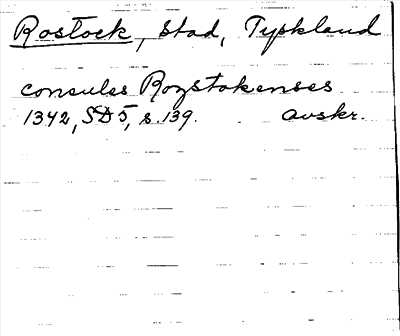 Rostock, stad, Tyskland
consules Rozstokenses
1342, SD 5, s. 139. avskr.